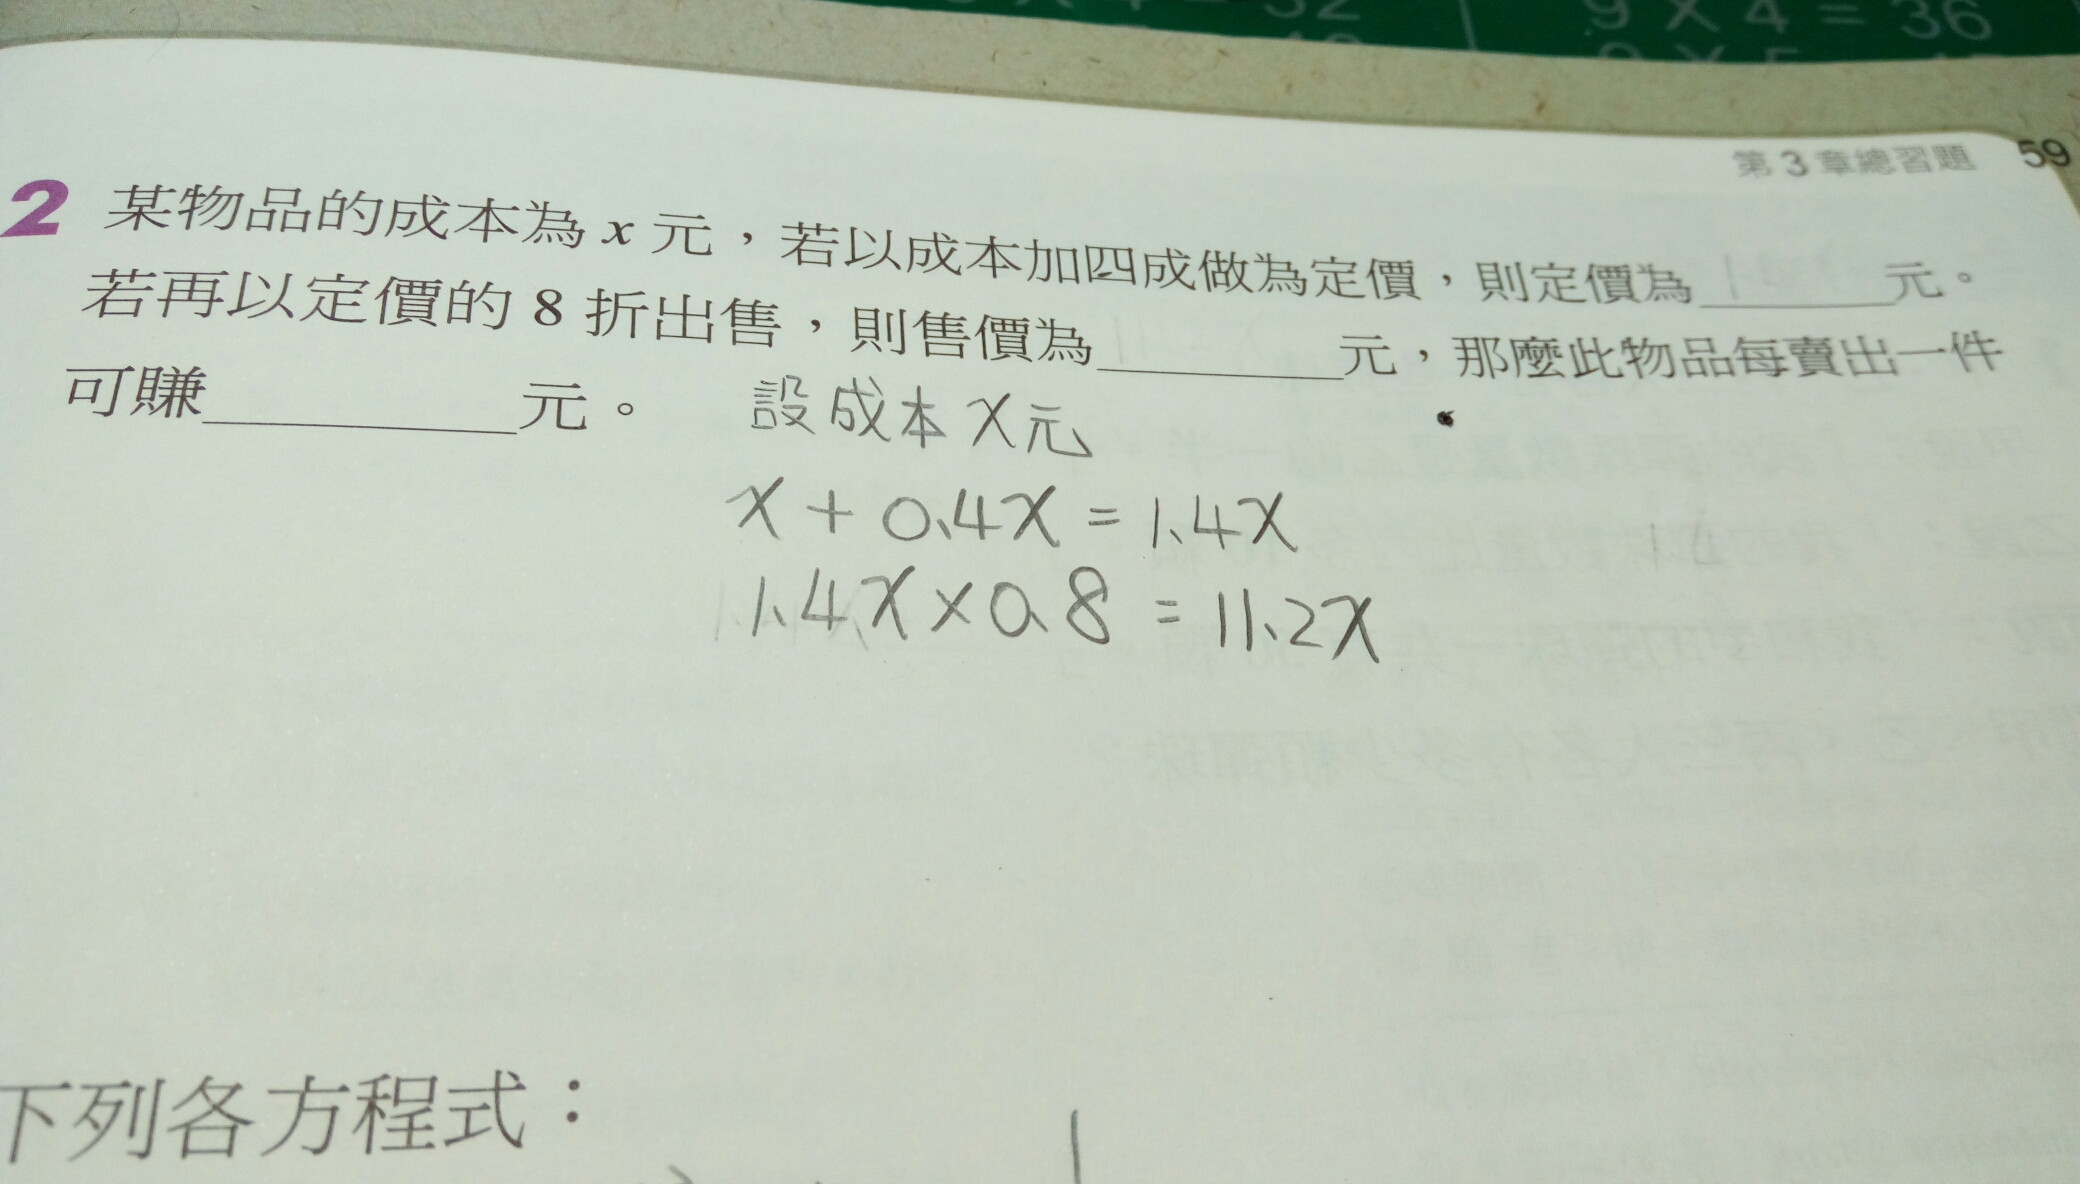 9 X 4 = 36
第3章總習題 59
2 某物品的成本為 x 元，若以成本加四成做為定價，則定價為________元。
若再以定價的 8 折出售，則售價為________元，那麼此物品每賣出一件
可賺________元。
設成本X元
X + 0.4X = 1.4X
1.4X×0.8 = 11.2X
下列各方程式：